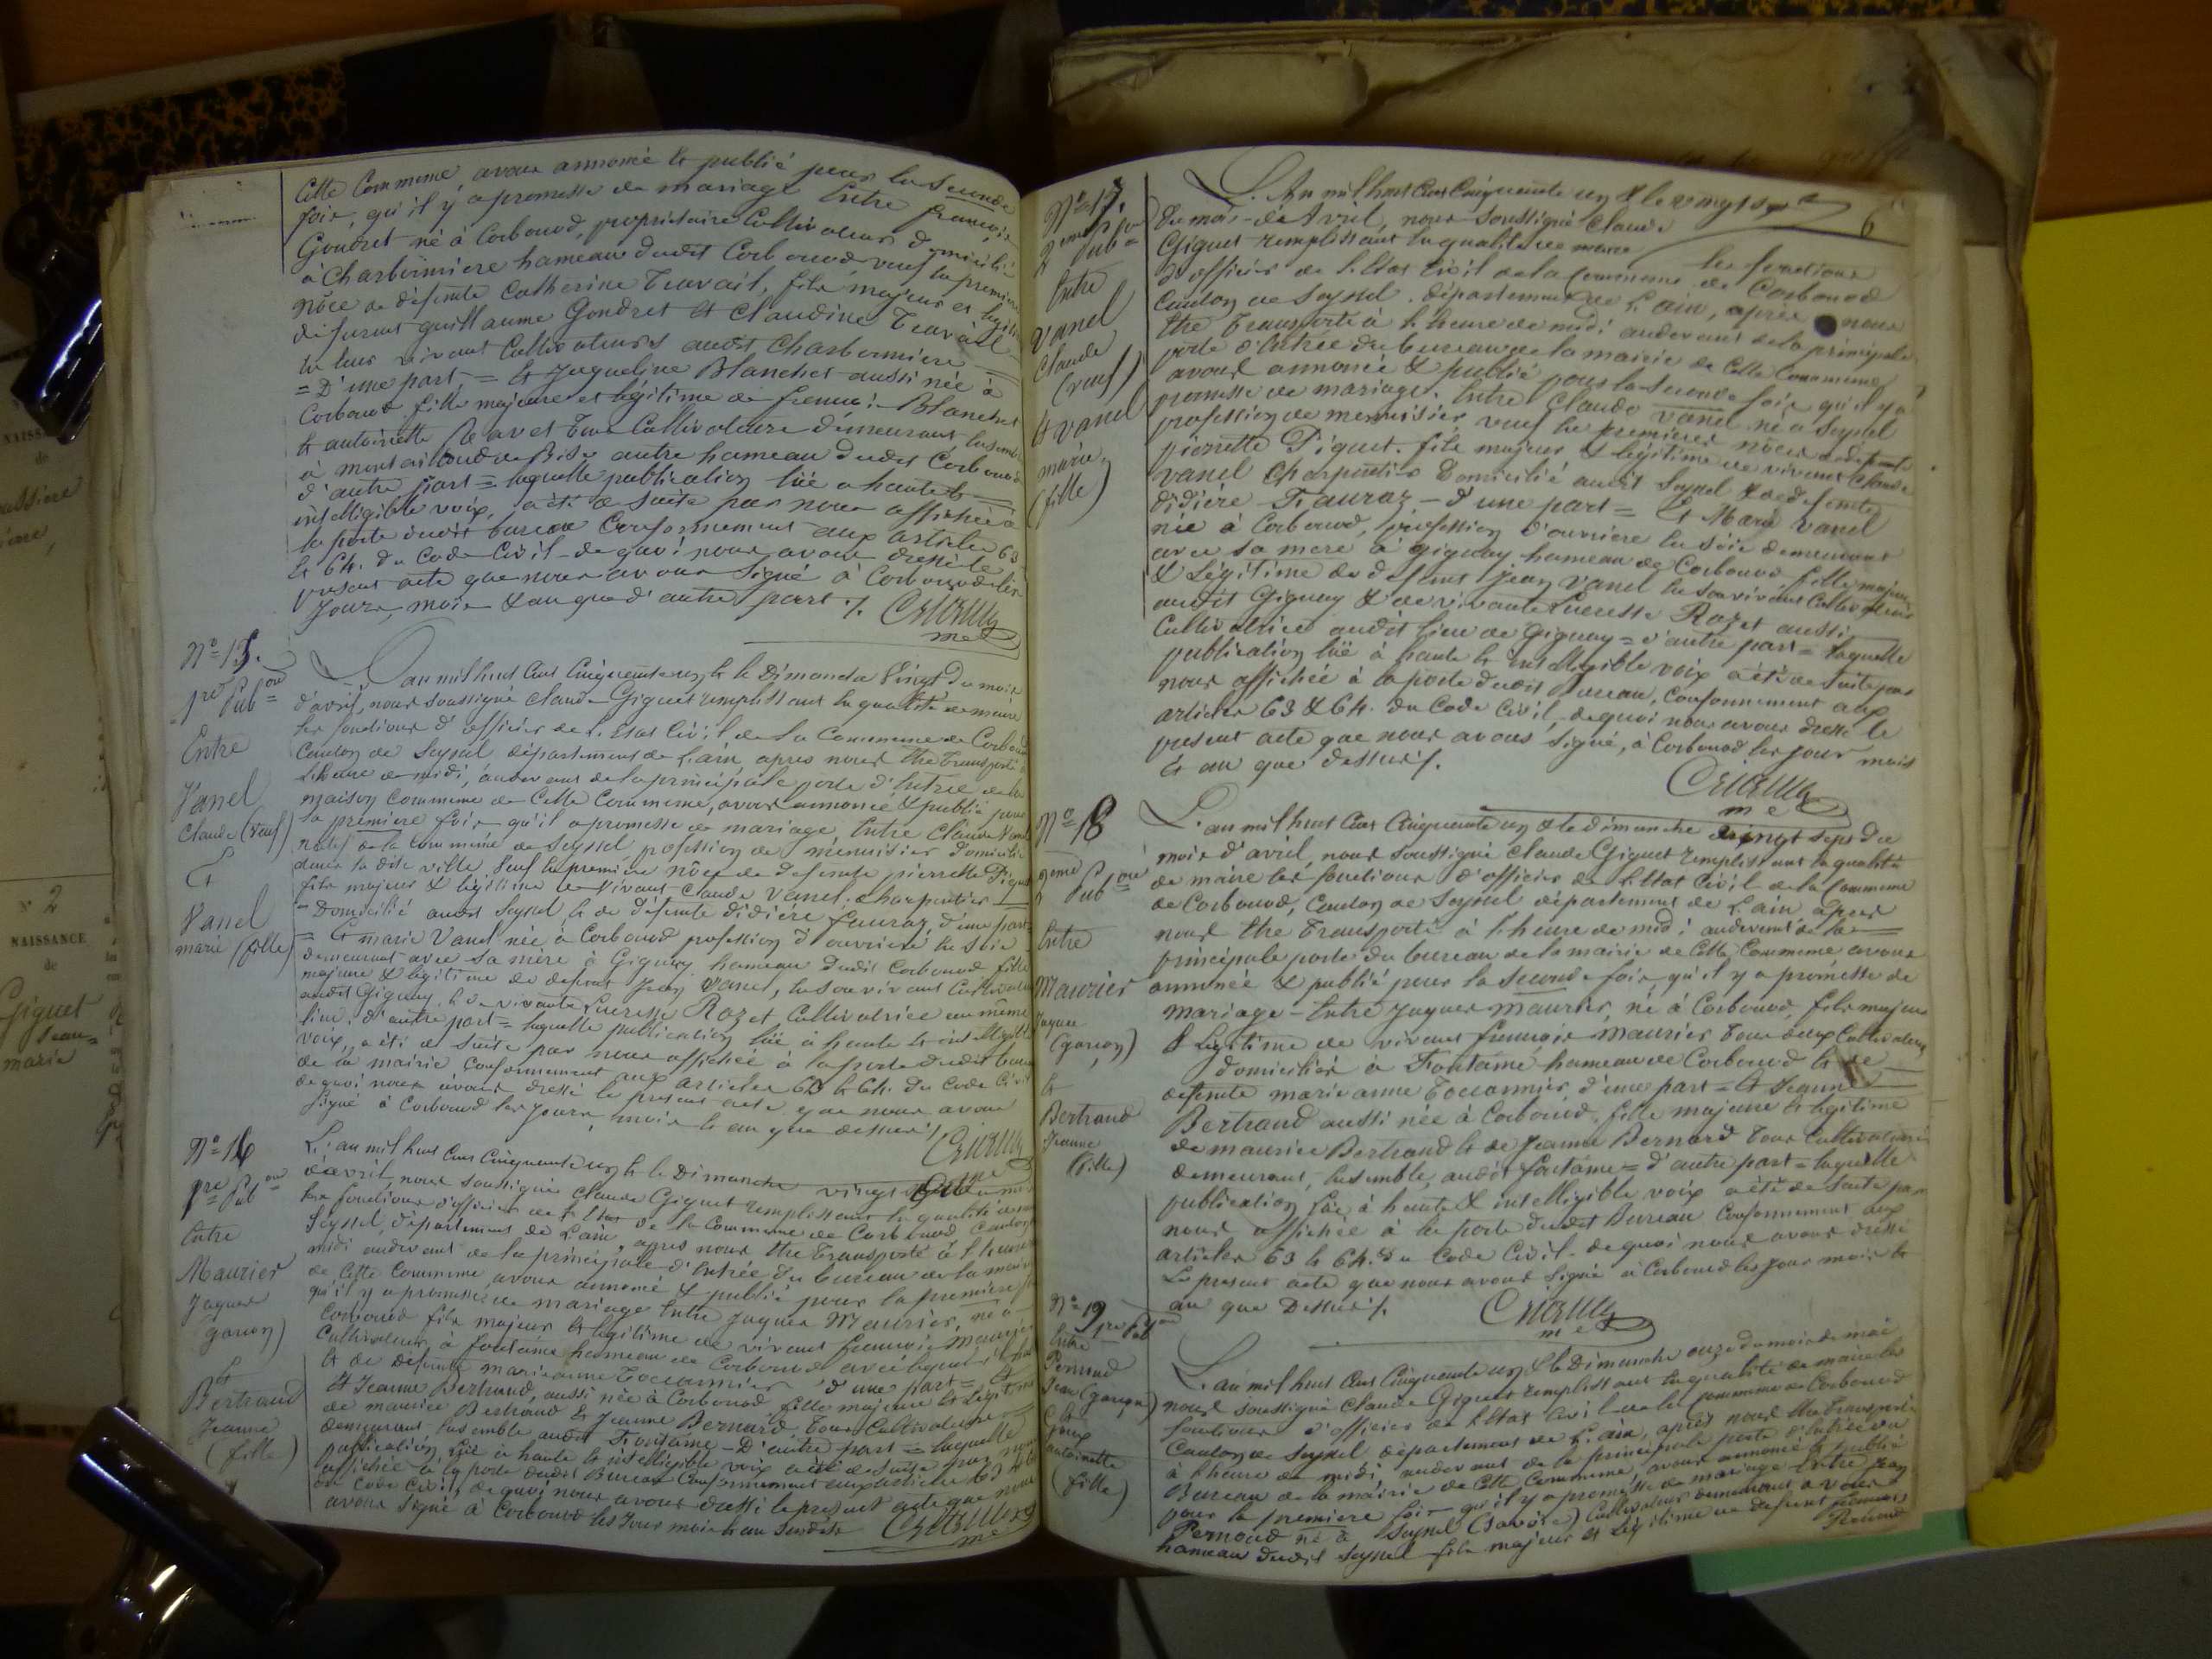 Cette Commune avons annoncé & publié pour la seconde
fois, qu'il y a promesse de mariage Entre françois
Gondret né à Corbonod, propriétaire Cultivateur domicilié
à Charbonniere hameau dudit Corbonod veuf en premiere
nôce de défunte Catherine Travail, fils majeur et légit
defunt guillaume Gondret & Claudine Travail
vivant Cultivateurs audit Charbonniere
= D'une part = & Jaqueline Blanchet aussi née à
Corbonod fille majeure et légitime de Blanchet
& antoinette tous Cultivateurs demeurant
à autre hameau dudit Corbonod
d'autre part = laquelle publication lüe a haute &
intelligible voix, a été de suite par nous affichée à
la porte dudit bureau Conformement aux articles 63
& 64. du Code Civil - de quoi nous avons dressé le
present acte que nous avons signé à Corbonod les
Jours, mois & an que d'autre part ./.
me
N° 15.
1re Pubon
Entre
Vanel
Claude (veuf)
Et
Vanel
marie (fille)
L'an mil huit Cent Cinquante un & le Dimanche vingt du mois
d'avril, nous soussigné Claude Giguet remplissant la qualité de maire
les fonctions d'officier de l'Etat Civil de la Commune de Corbonod
Canton de Seyssel département de l'ain, apres nous être transporté à
L'heure de midi, audevant de la principale porte d'Entrée de la
maison Commune de Cette Commune, avons annoncé & publié pour
la premiere fois qu'il a promesse de mariage, Entre Claude Vanel
natif de la Commune de Seyssel, profession de menuisier domicilié
dans la dite ville, veuf en premiere nôce de defunte pierrette Piguet
fils majeur & légitime de vivant Claude Vanel, Charpentier
= Domicilié audit Seyssel & de défunte didière fauraz, d'une part
= & marie Vanel née à Corbonod profession d'ouvriere en Soie
demeurant avec sa mère à Gignay hameau dudit Corbonod fille
majeure & légitime de defunt Jean Vanel, en son vivant Cultivateur
audit Gignay & de vivante Lucresse Rozet Cultivatrice au même
lieu, d'autre part = laquelle publication lüe à haute & intelligible
voix, a été de suite par nous affichée à la porte dudit bureau
de la mairie conformement aux articles 63 & 64. du Code Civil
de quoi nous avons dressé le present acte que nous avons
signé à Corbonod les jours, mois & an que dessus ./.
me
N° 16
1re Pubon
Entre
Maurier
Jaques
garçon)
&
Bertrand
Jeanne
(fille)
L'an mil huit Cent Cinquante un & le Dimanche vingt
d'avril, nous soussigné Claude Giguet remplissant la qualité de maire
les fonctions d'officier de l'Etat de la Commune de Corbonod Canton
Seyssel, département de l'ain, apres nous être transporté à l'heure
midi audevant de la principale d'Entrée du bureau de la mairie
de Cette Commune avons annoncé & publié pour la premiere fois
qu'il y a promesse de mariage Entre Jaques Maurier, né à
Corbonod fils majeur & légitime de vivant françois Maurier
Cultivateurs, à fontaine hameau de Corbonod avec lequel il
& de Défunte marieanne Toccannier d'une part = &
& Jeanne Bertrand, aussi née à Corbonod fille majeure & légitime
de maurice Bertrand & Jeanne Bernard, tous Cultivateurs
demeurant Ensemble audit Fontaine - D'autre part = laquelle
publication lüe à haute & intelligible voix a été de suite par nous
affichée à la porte dudit Bureau Conformement aux articles 63 & 64
du Code Civil, de quoi nous avons dressé le présent acte que nous
avons signé à Corbonod les Jour mois & an susdits
me
6
N° 17.
2eme Pubon
Entre
Vanel
Claude
(veuf)
& Vanel
marie,
(fille)
L'An mil huit Cent Cinquante un & le vingt sept
Du mois d'Avril, nous Soussigné Claude
Giguet remplissant la qualité de maire les fonctions
d'officier de l'Etat Civil de la Commune de Corbonod
Canton de Seyssel, département de L'ain, après nous
être Transporté à l'heure de midi audevant de la principale
porte d'Entrée du bureau de la mairie de Cette Commune
avons annoncé & publié pour la Seconde fois qu'il y a
promesse de mariage, Entre Claude Vanel né à Seyssel
profession de menuisier, veuf en premieres nôces de defunte
pierrette Piguet, fils majeur & légitime de vivant Claude
Vanel Charpentier Domicilié audit Seyssel & de defunte
Didière Fauraz - d'une part = Et Marie Vanel
née à Corbonod, profession d'ouvriere en Soie demeurant
avec sa mere à gignay hameau de Corbonod fille majeure
& Légitime de defunt Jean Vanel en son vivant Cultivateur
audit Gignay & de vivante Lucresse Rozet aussi
Cultivatrice audit lieu de Gignay = d'autre part = laquelle
publication lüe à haute & intelligible voix a été de suite par
nous affichée à la porte dudit Bureau, Conformement aux
articles 63 & 64. du Code Civil, de quoi nous avons dressé le
present acte que nous avons signé, à Corbonod les jour mois
& an que dessus ./.
me
N° 18
2eme Pubon
Entre
Maurier
Jaques
(garçon)
&
Bertrand
Jeanne
(fille)
L'an mil huit Cent Cinquante un & le dimanche vingt sept du
mois d'avril, nous soussigné Claude Giguet remplissant la qualité
de maire les fonctions d'officier de l'Etat Civil de la Commune
de Corbonod, Canton de Seyssel département de L'ain, après
nous être Transporté à l'heure de midi audevant de la
principale porte du bureau de la mairie de Cette Commune avons
annoncé & publié pour la seconde fois, qu'il y a promesse de
mariage - Entre Jaques Maurier, né à Corbonod, fils majeur
& Légitime de vivant françois Maurier tous deux Cultivateurs
domiciliés à Fontaine hameau de Corbonod & de
defunte marie anne Toccannier d'une part = & Jeanne
Bertrand aussi née à Corbonod, fille majeure & légitime
de maurice Bertrand & de Jeanne Bernard tous Cultivateurs
demeurant, Ensemble, audit fontaine = d'autre part = laquelle
publication lüe à haute & intelligible voix a été de suite par
nous affichée à la porte dudit Bureau Conformement aux
articles 63 & 64. du Code Civil - de quoi nous avons dressé
Le present acte que nous avons signé à Corbonod les jour mois &
an que Dessus ./.
me
N° 19
1re Pubon
Entre
Pernoud
Jean (garçon)
&
antoinette
(fille)
L'an mil huit Cent Cinquante un, & le Dimanche onze du mois de mai
nous soussigné Claude Giguet remplissant la qualité de maire les
fonctions d'officier de l'Etat Civil de la Commune de Corbonod
Canton de Seyssel département de L'ain, après nous être Transporté
à l'heure de midi, audevant de la principale porte d'Entrée du
Bureau de la mairie de Cette Commune, avons annoncé & publié
pour la premiere fois qu'il y a promesse de mariage Entre Jean
Pernoud né à Seyssel (Savoie) Cultivateur demeurant a
hameau dudit Seyssel fils majeur & Légitime de defunt françois
Pernoud
N° 2
NAISSANCE
de
Giguet
Jean=
marie